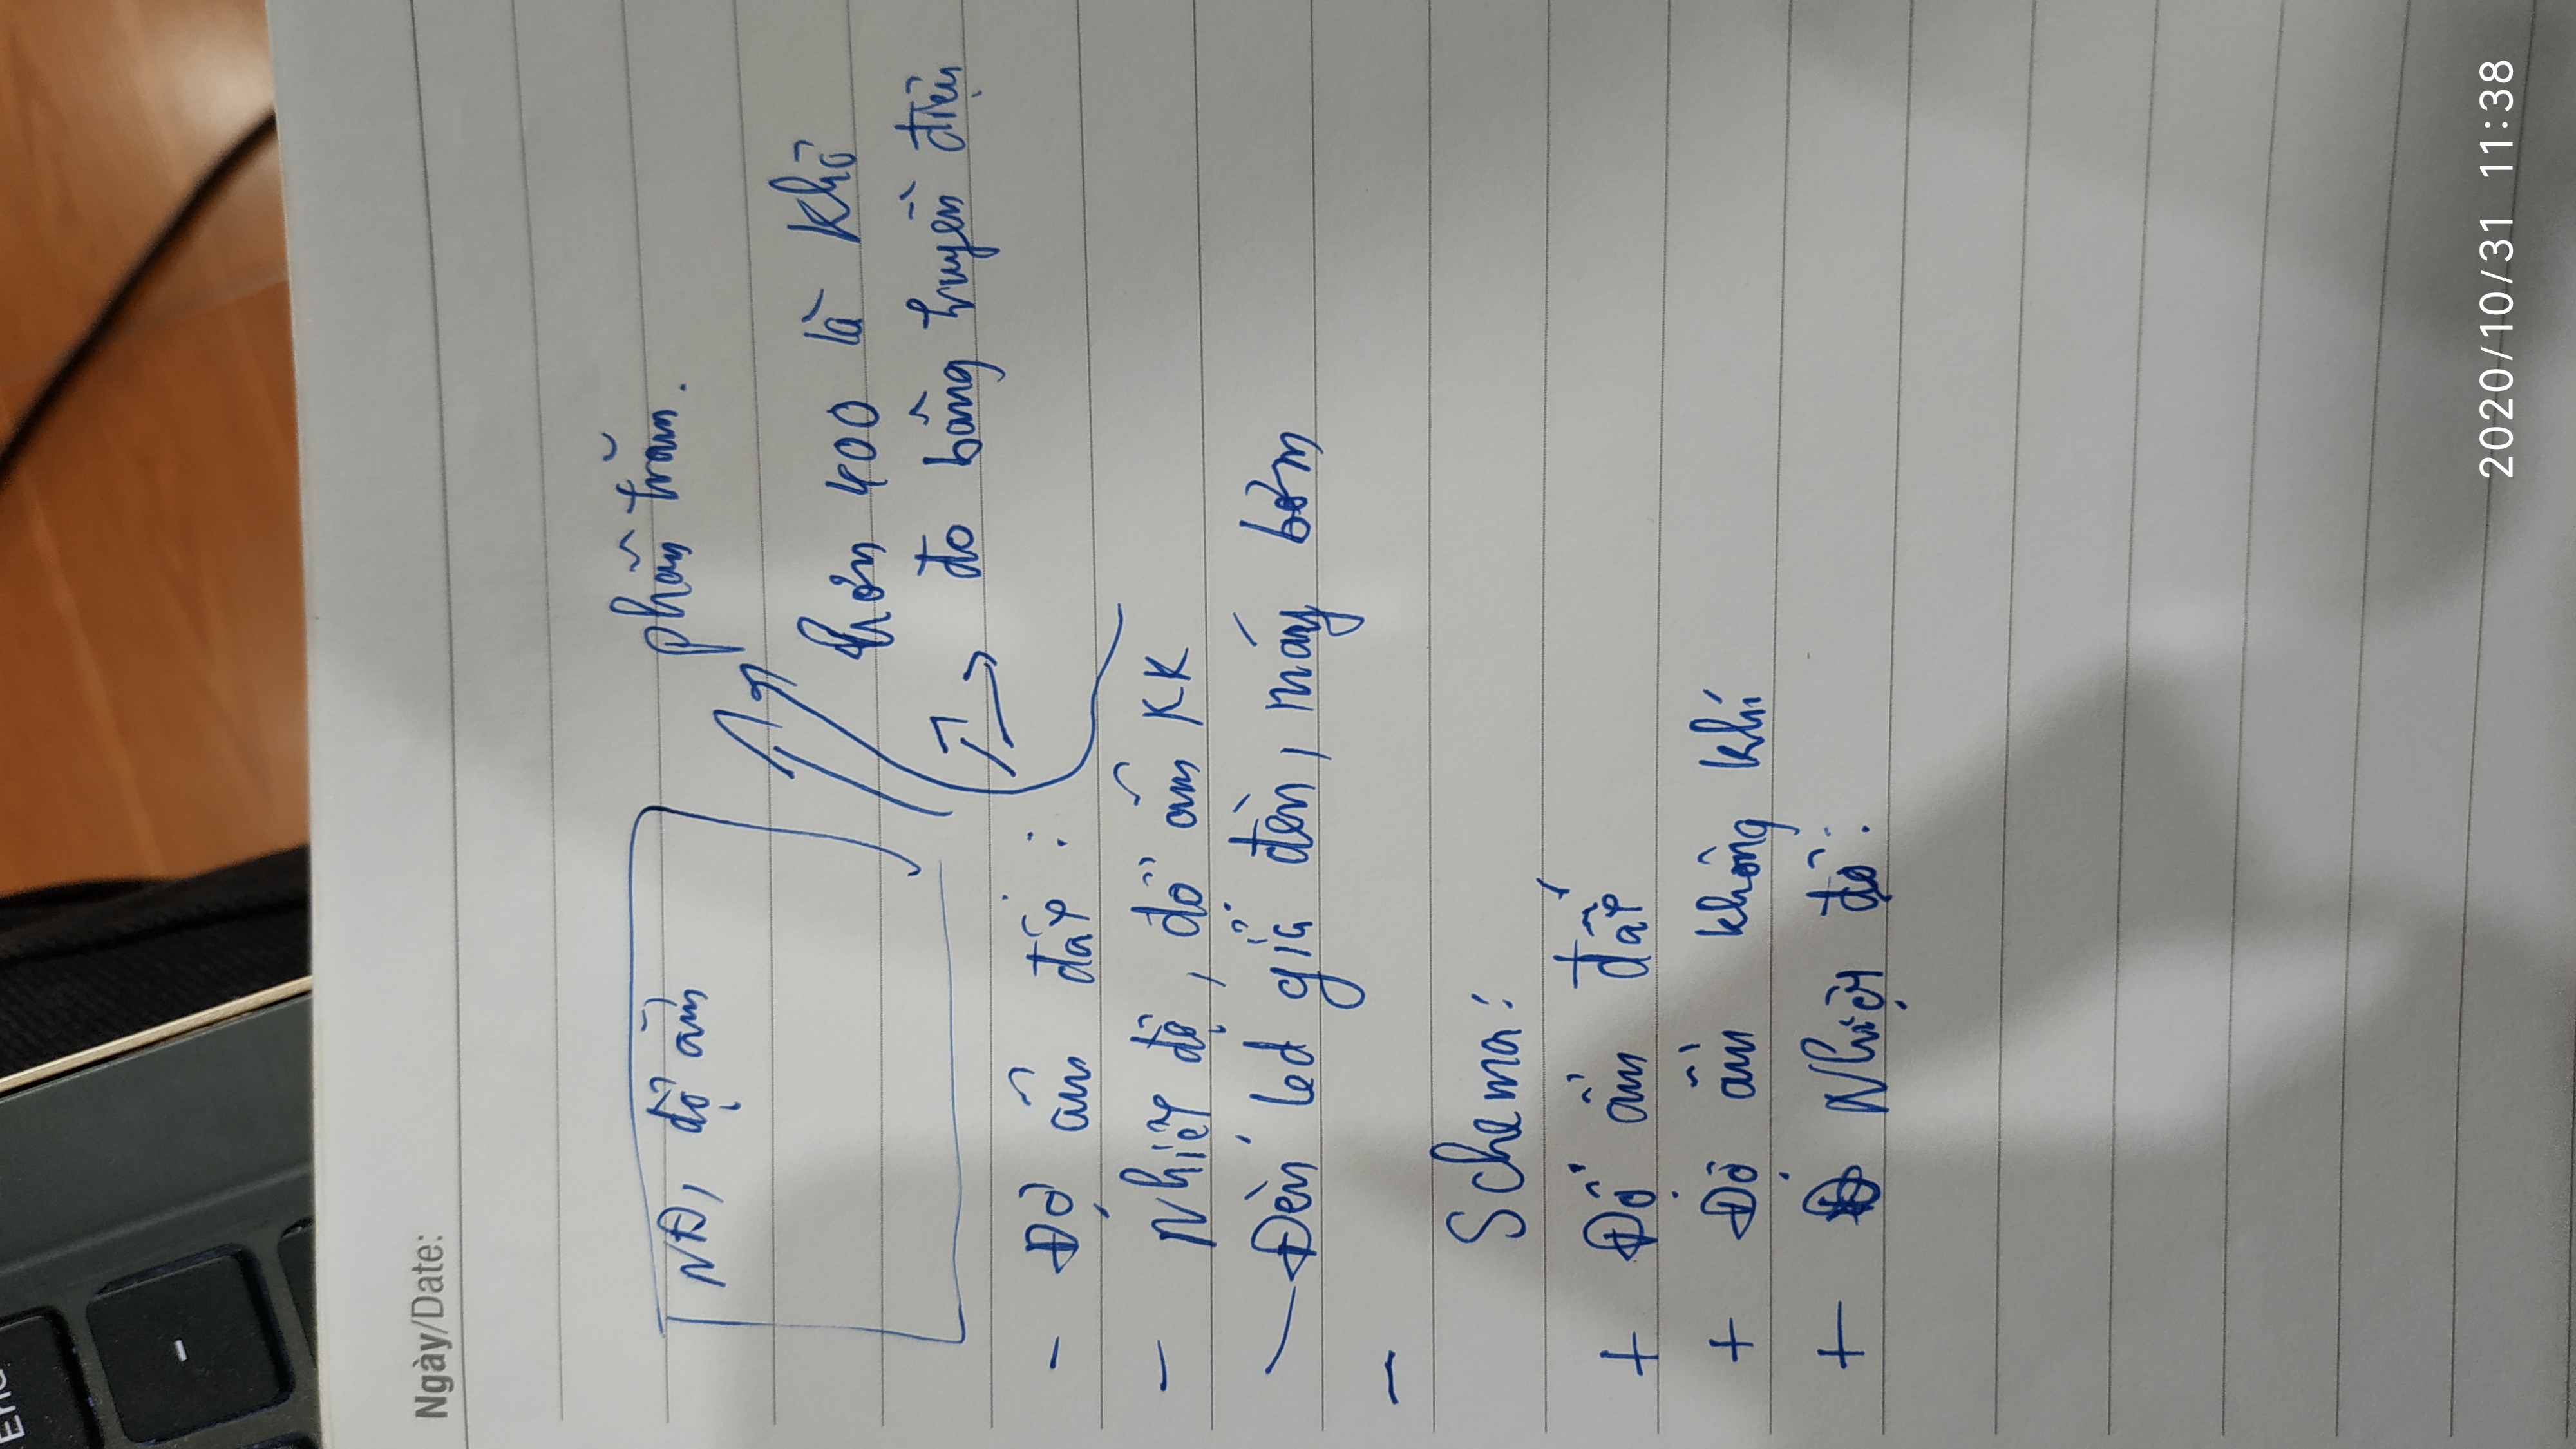 End
-
Ngày/Date:
NĐ, độ ẩm
phần trăm.
hơn 400 là khô
đo bằng truyền điện
- Độ ẩm đất :
- Nhiệt độ, độ ẩm KK
- Đèn led giả đèn, máy bơm
-
Schema:
+ Độ ẩm đất
+ Độ ẩm không khí
+ Nhiệt độ:
2020/10/31 11:38